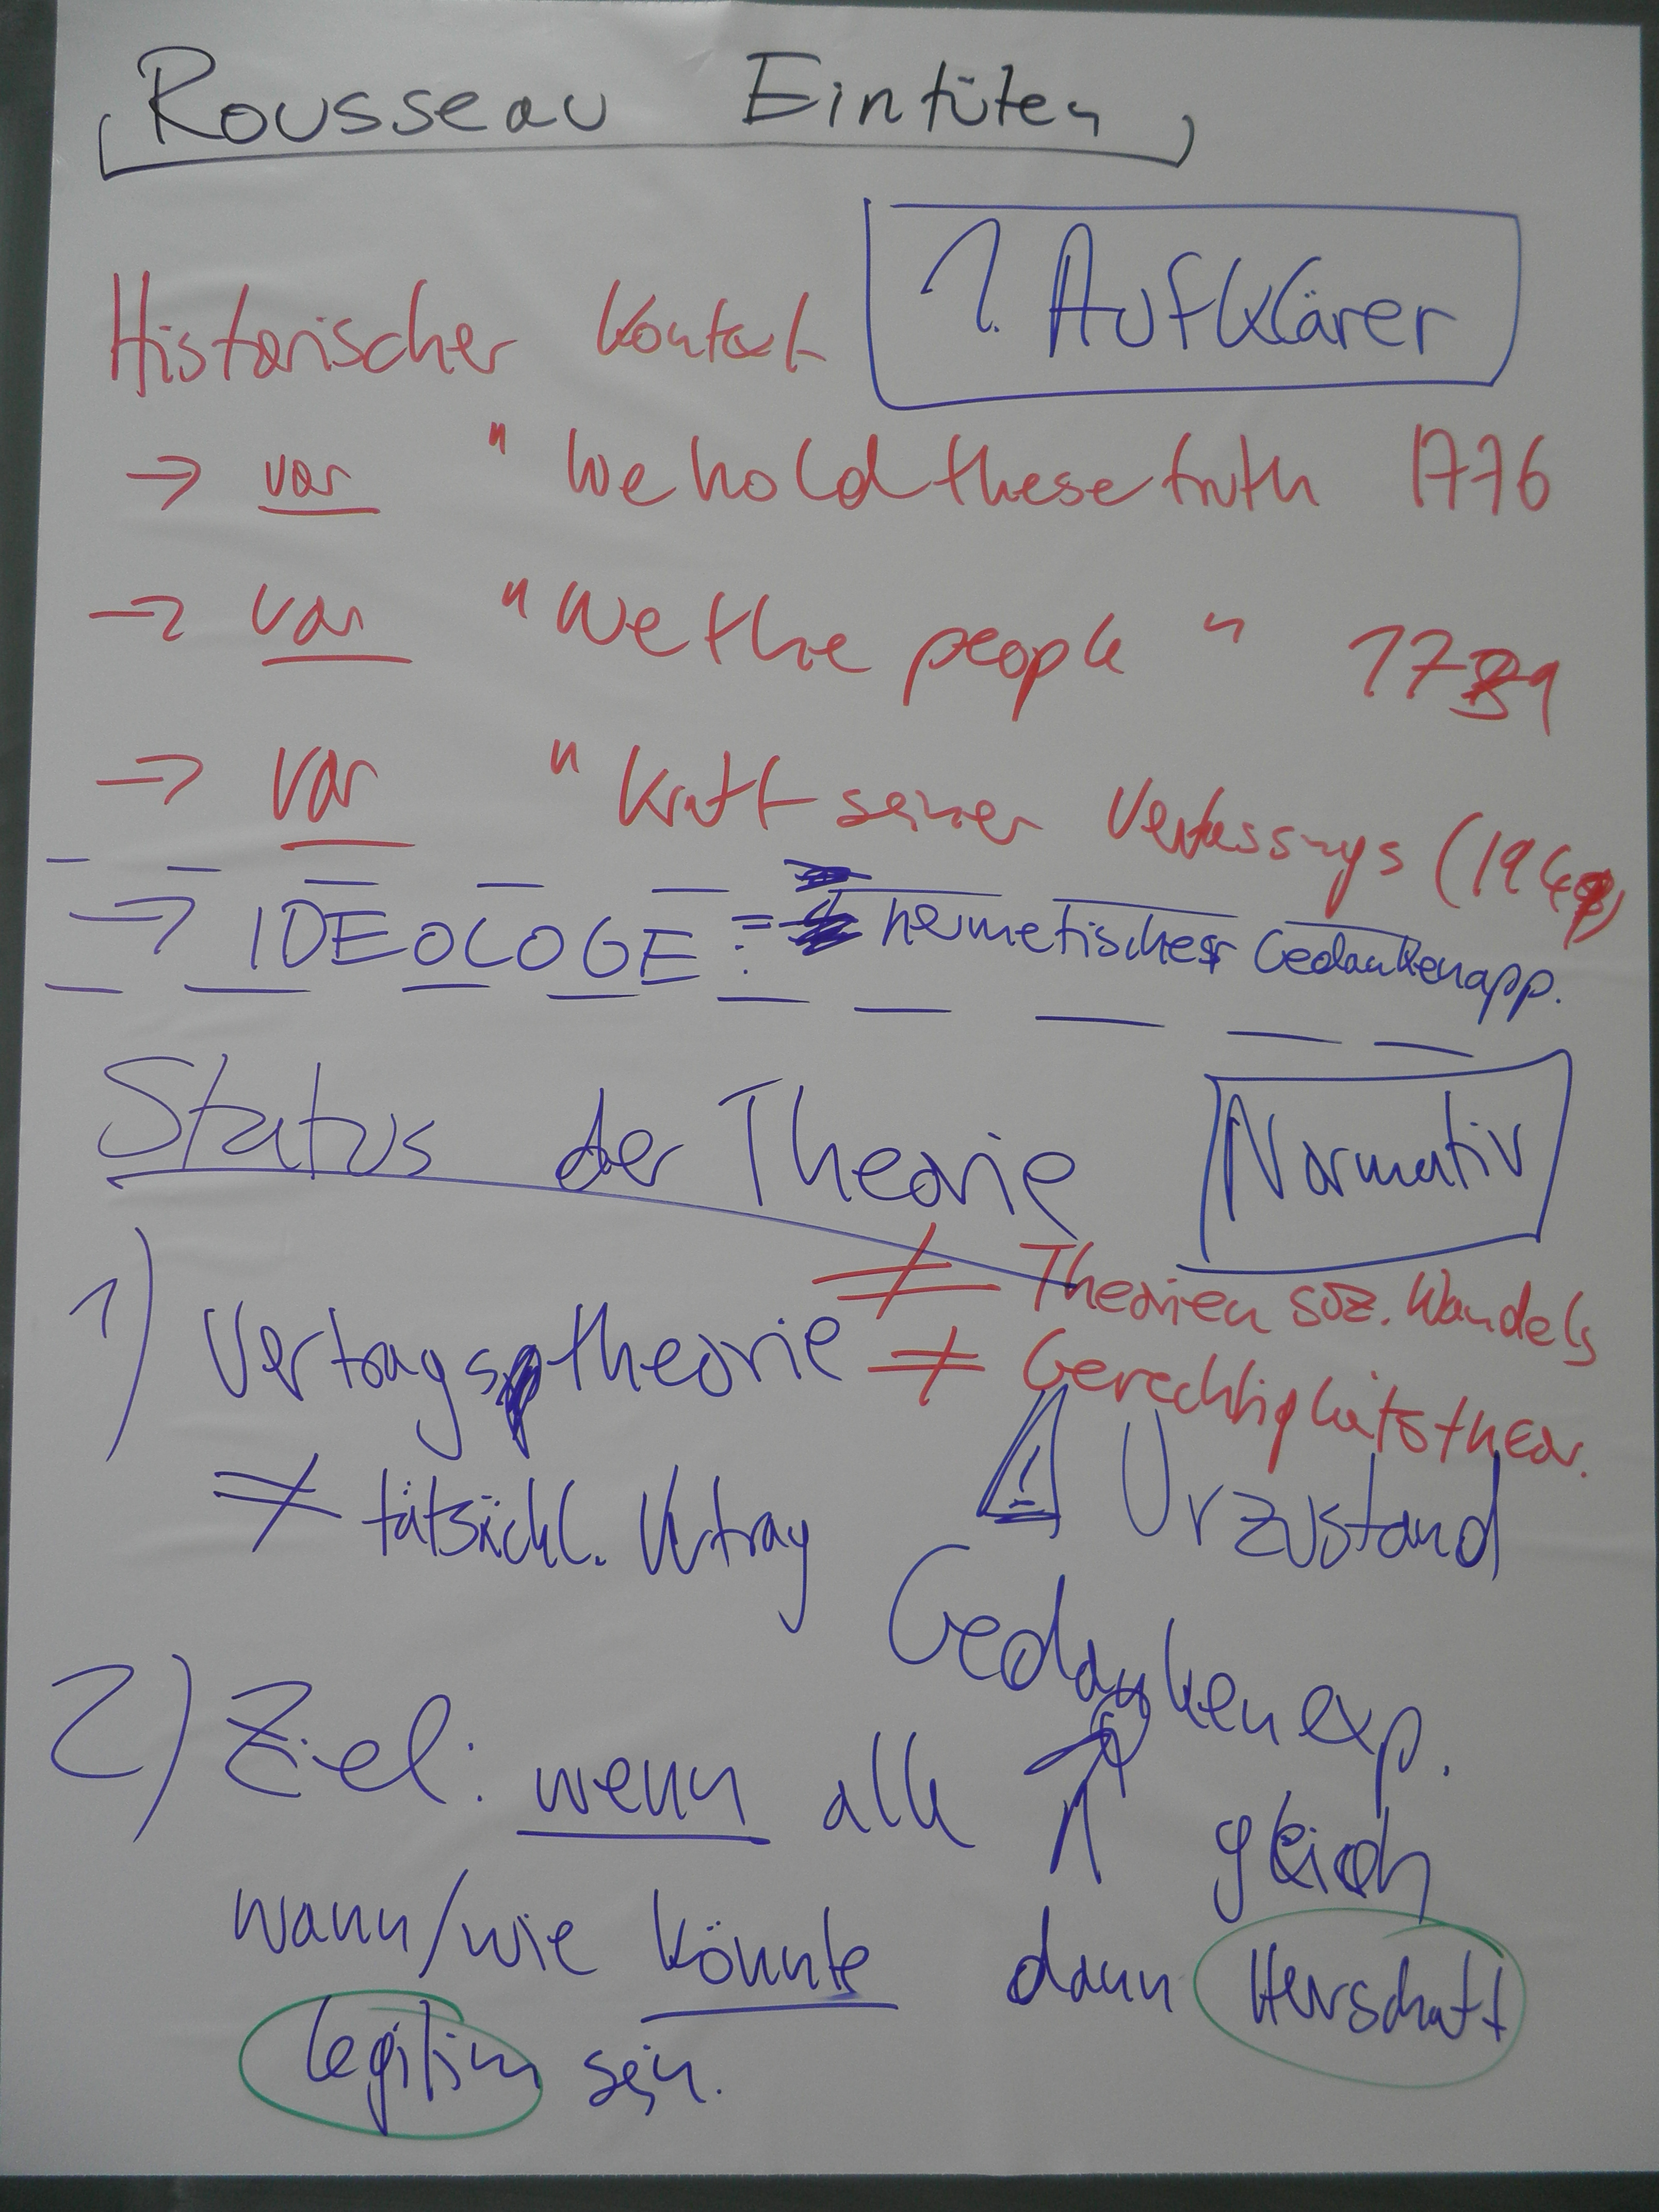 Rousseau Eintüten
1. Aufklärer
Historischer Kontext
→ vor "We hold these truth 1776
→ vor "We the people" 1789
→ vor "Kraft seiner Verfassungs (1949)
→ IDEOLOGE := hermetischer Gedankenapp.
Status der Theorie Normativ
1) Vertragstheorie ≠ Theorien soz. Wandels
≠ Gerechtigkeitstheor.
≠ tätsächl. Vertrag Urzustand
Gedankenexp.
2) Ziel: wenn alle gleich
wann/wie könnte dann Herrschaft
legitim sein.